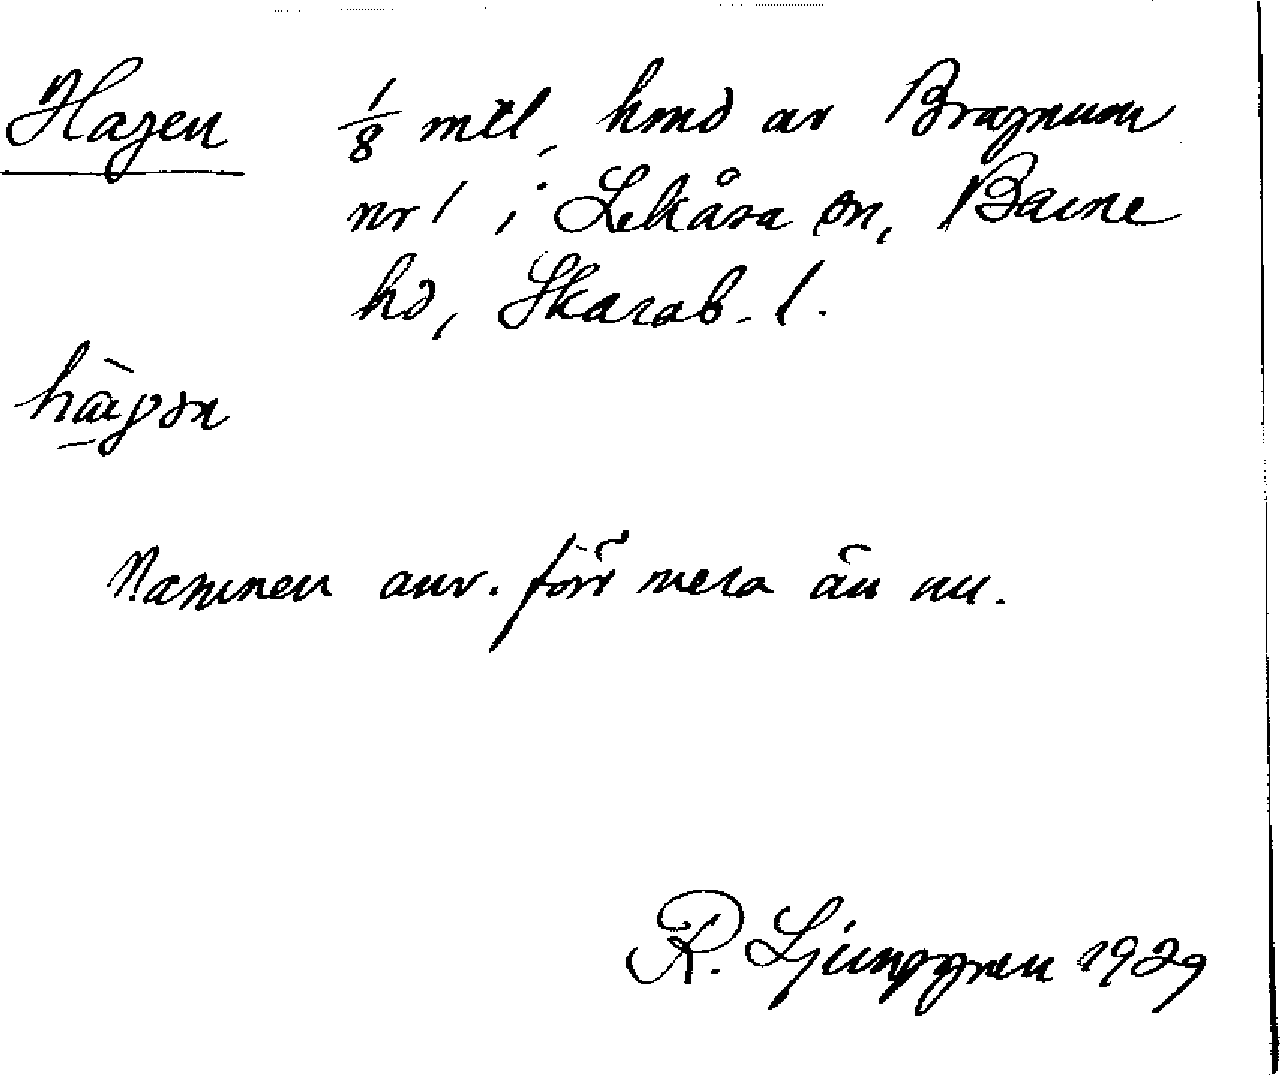 Hagen 1/8 mtl, hmd av Bragnum
nr 1 i Lekåsa sn, Barne
hd, Skarab. l.
hàgən
Namnen anv. förr mera än nu.
R. Ljunggren 1929